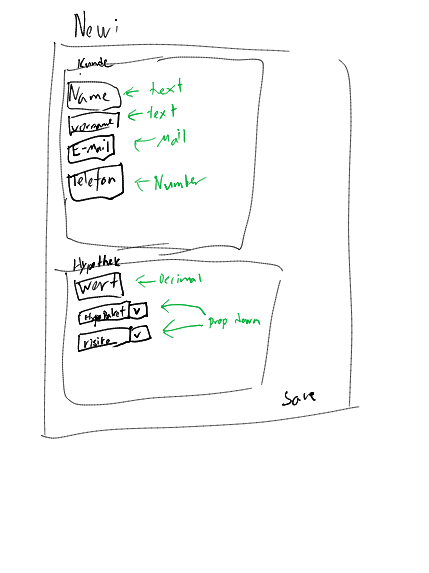 New:
Kunde
Name ← text
Vorname ← text
E-Mail ← Mail
Telefon ← Number
Hypothek
Wert ← Decimal
HypoPaket
Drop down
risiko
Save